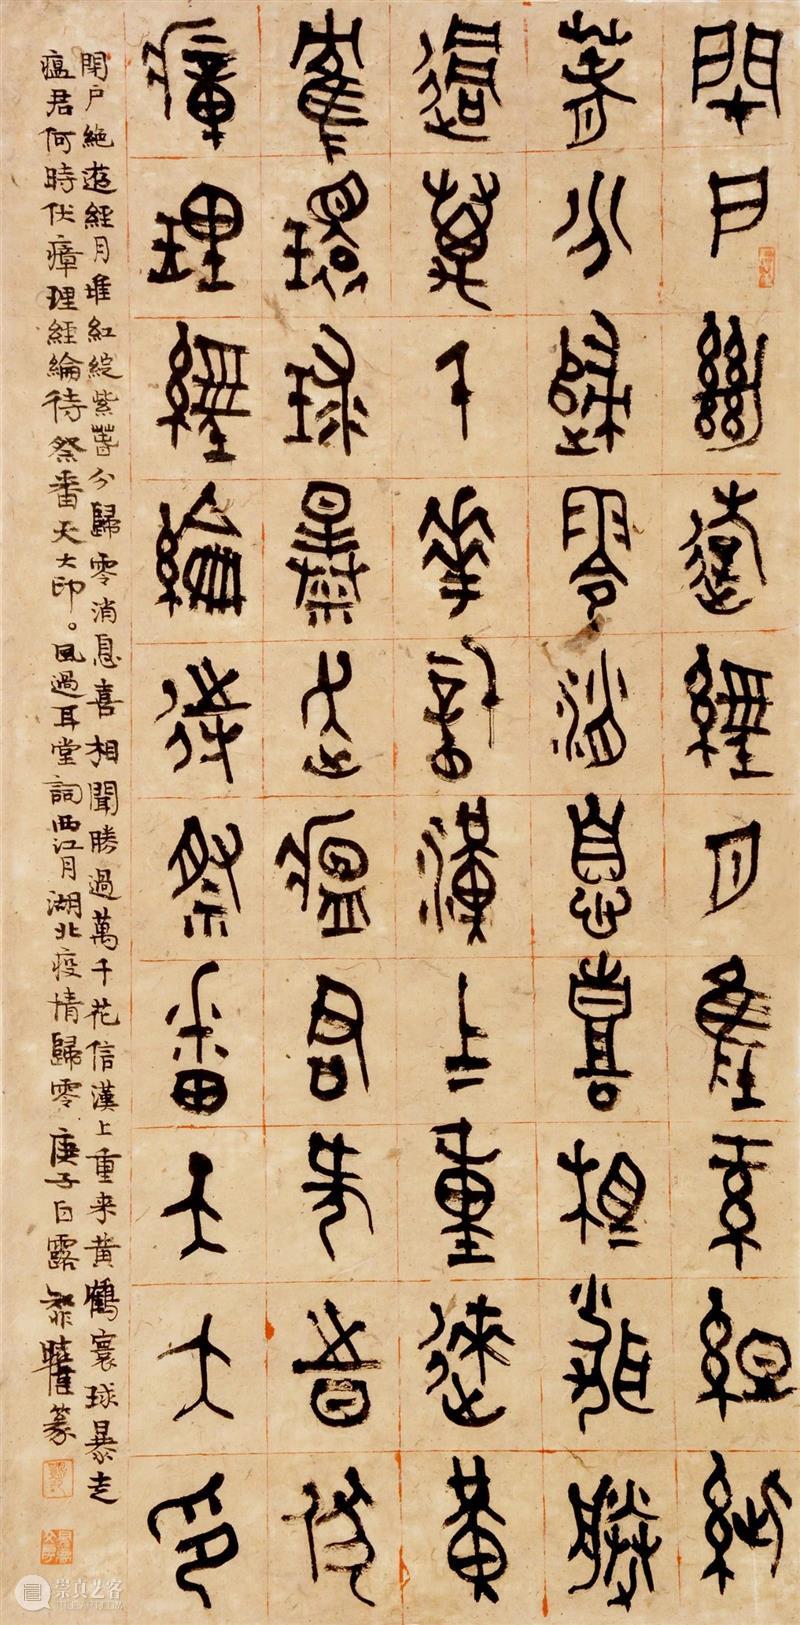 閉戶絕遊經月堆紅綻紫
萅分歸零消息喜相聞勝
過萬千花信漢上重來黃
鶴寰球暴走瘟君何時伏
瘴理經綸待祭番天大印
閉戶絕遊經月堆紅綻紫萅分歸零消息喜相聞勝過萬千花信漢上重来黄鶴寰球暴走
瘟君何時伏瘴理經綸待祭番天大印。風過耳堂詞西江月湖北疫情歸零 庚子白露 篆
崇真艺客